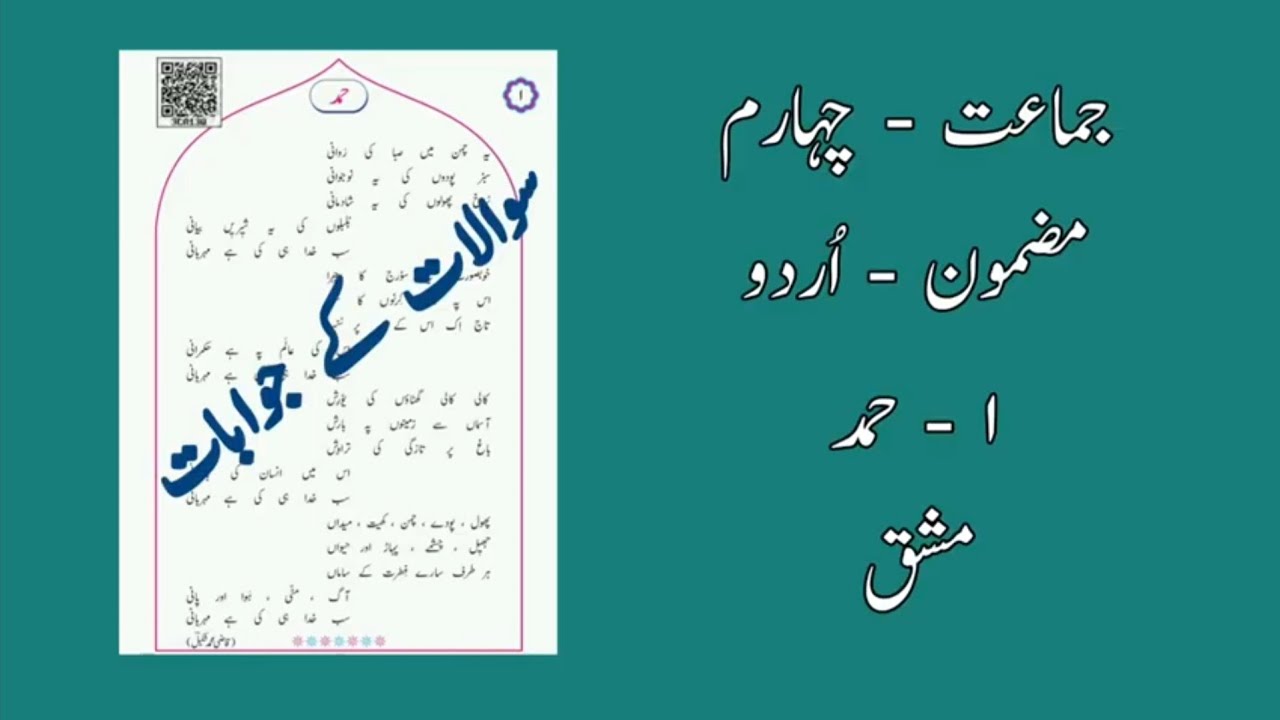 جماعت - چہارم
مضمون - اُردو
۱ - حمد
مشق
سوالات کے جوابات
۱
حمد
یہ چمن میں صبا کی روانی
سبز پودوں کی یہ نوجوانی
پھولوں کی یہ شادمانی
بلبلوں کی یہ شیریں بیانی
سب خدا ہی کی ہے مہربانی
سورج کا
اس پہ کرنوں کا
تاج اِک اس کے پر
کی عالم پہ ہے حکمرانی
خدا ہے مہربانی
کالی کالی گھٹاؤں کی یورش
آسماں سے زمینوں پہ بارش
باغ پر تازگی کی تراوش
اس میں انسان کی
سب خدا ہی کی ہے مہربانی
پھول ، پودے ، چمن ، کھیت ، میداں
جھیل ، چشمے ، پہاڑ اور حیواں
ہر طرف سارے فطرت کے ساماں
آگ ، مٹی ، ہوا اور پانی
سب خدا ہی کی ہے مہربانی